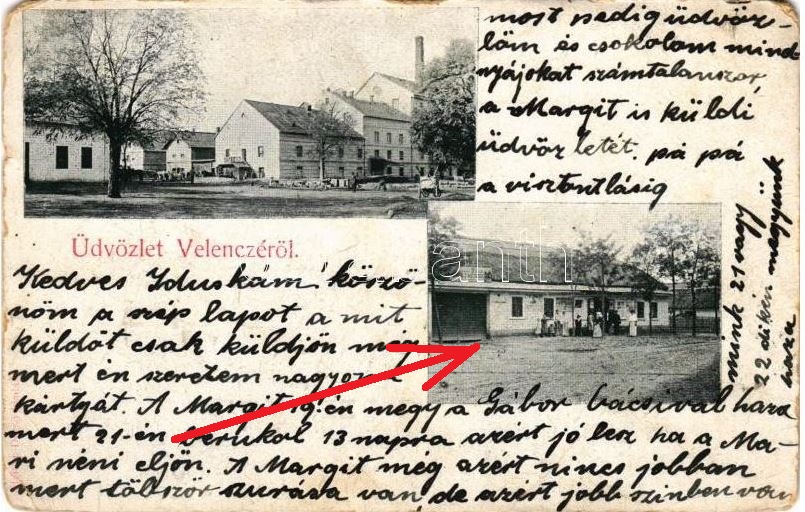 Üdvözlet Velenczéről.
Kedves Iduskám! köszö-
nöm a szép lapot a mit
küldöt csak küldjön meg
mert én szeretem nagyon a
kártyát. A Margit 19.-én megy a Gábor bácsival haza
mert 21-én berukol 13 napra azért jó lesz ha a Ma-
ri néni eljön. A Margit még azért nincs jobban
mert többször szurása van, de azért jobb szinben van
most pedig üdvöz-
löm és csokolom mind-
nyájokat számtalanszor
a Margit is küldi
üdvözletét. pá pá
a viszontlásig
mink 21 vagy
22 dikén megyünk
haza